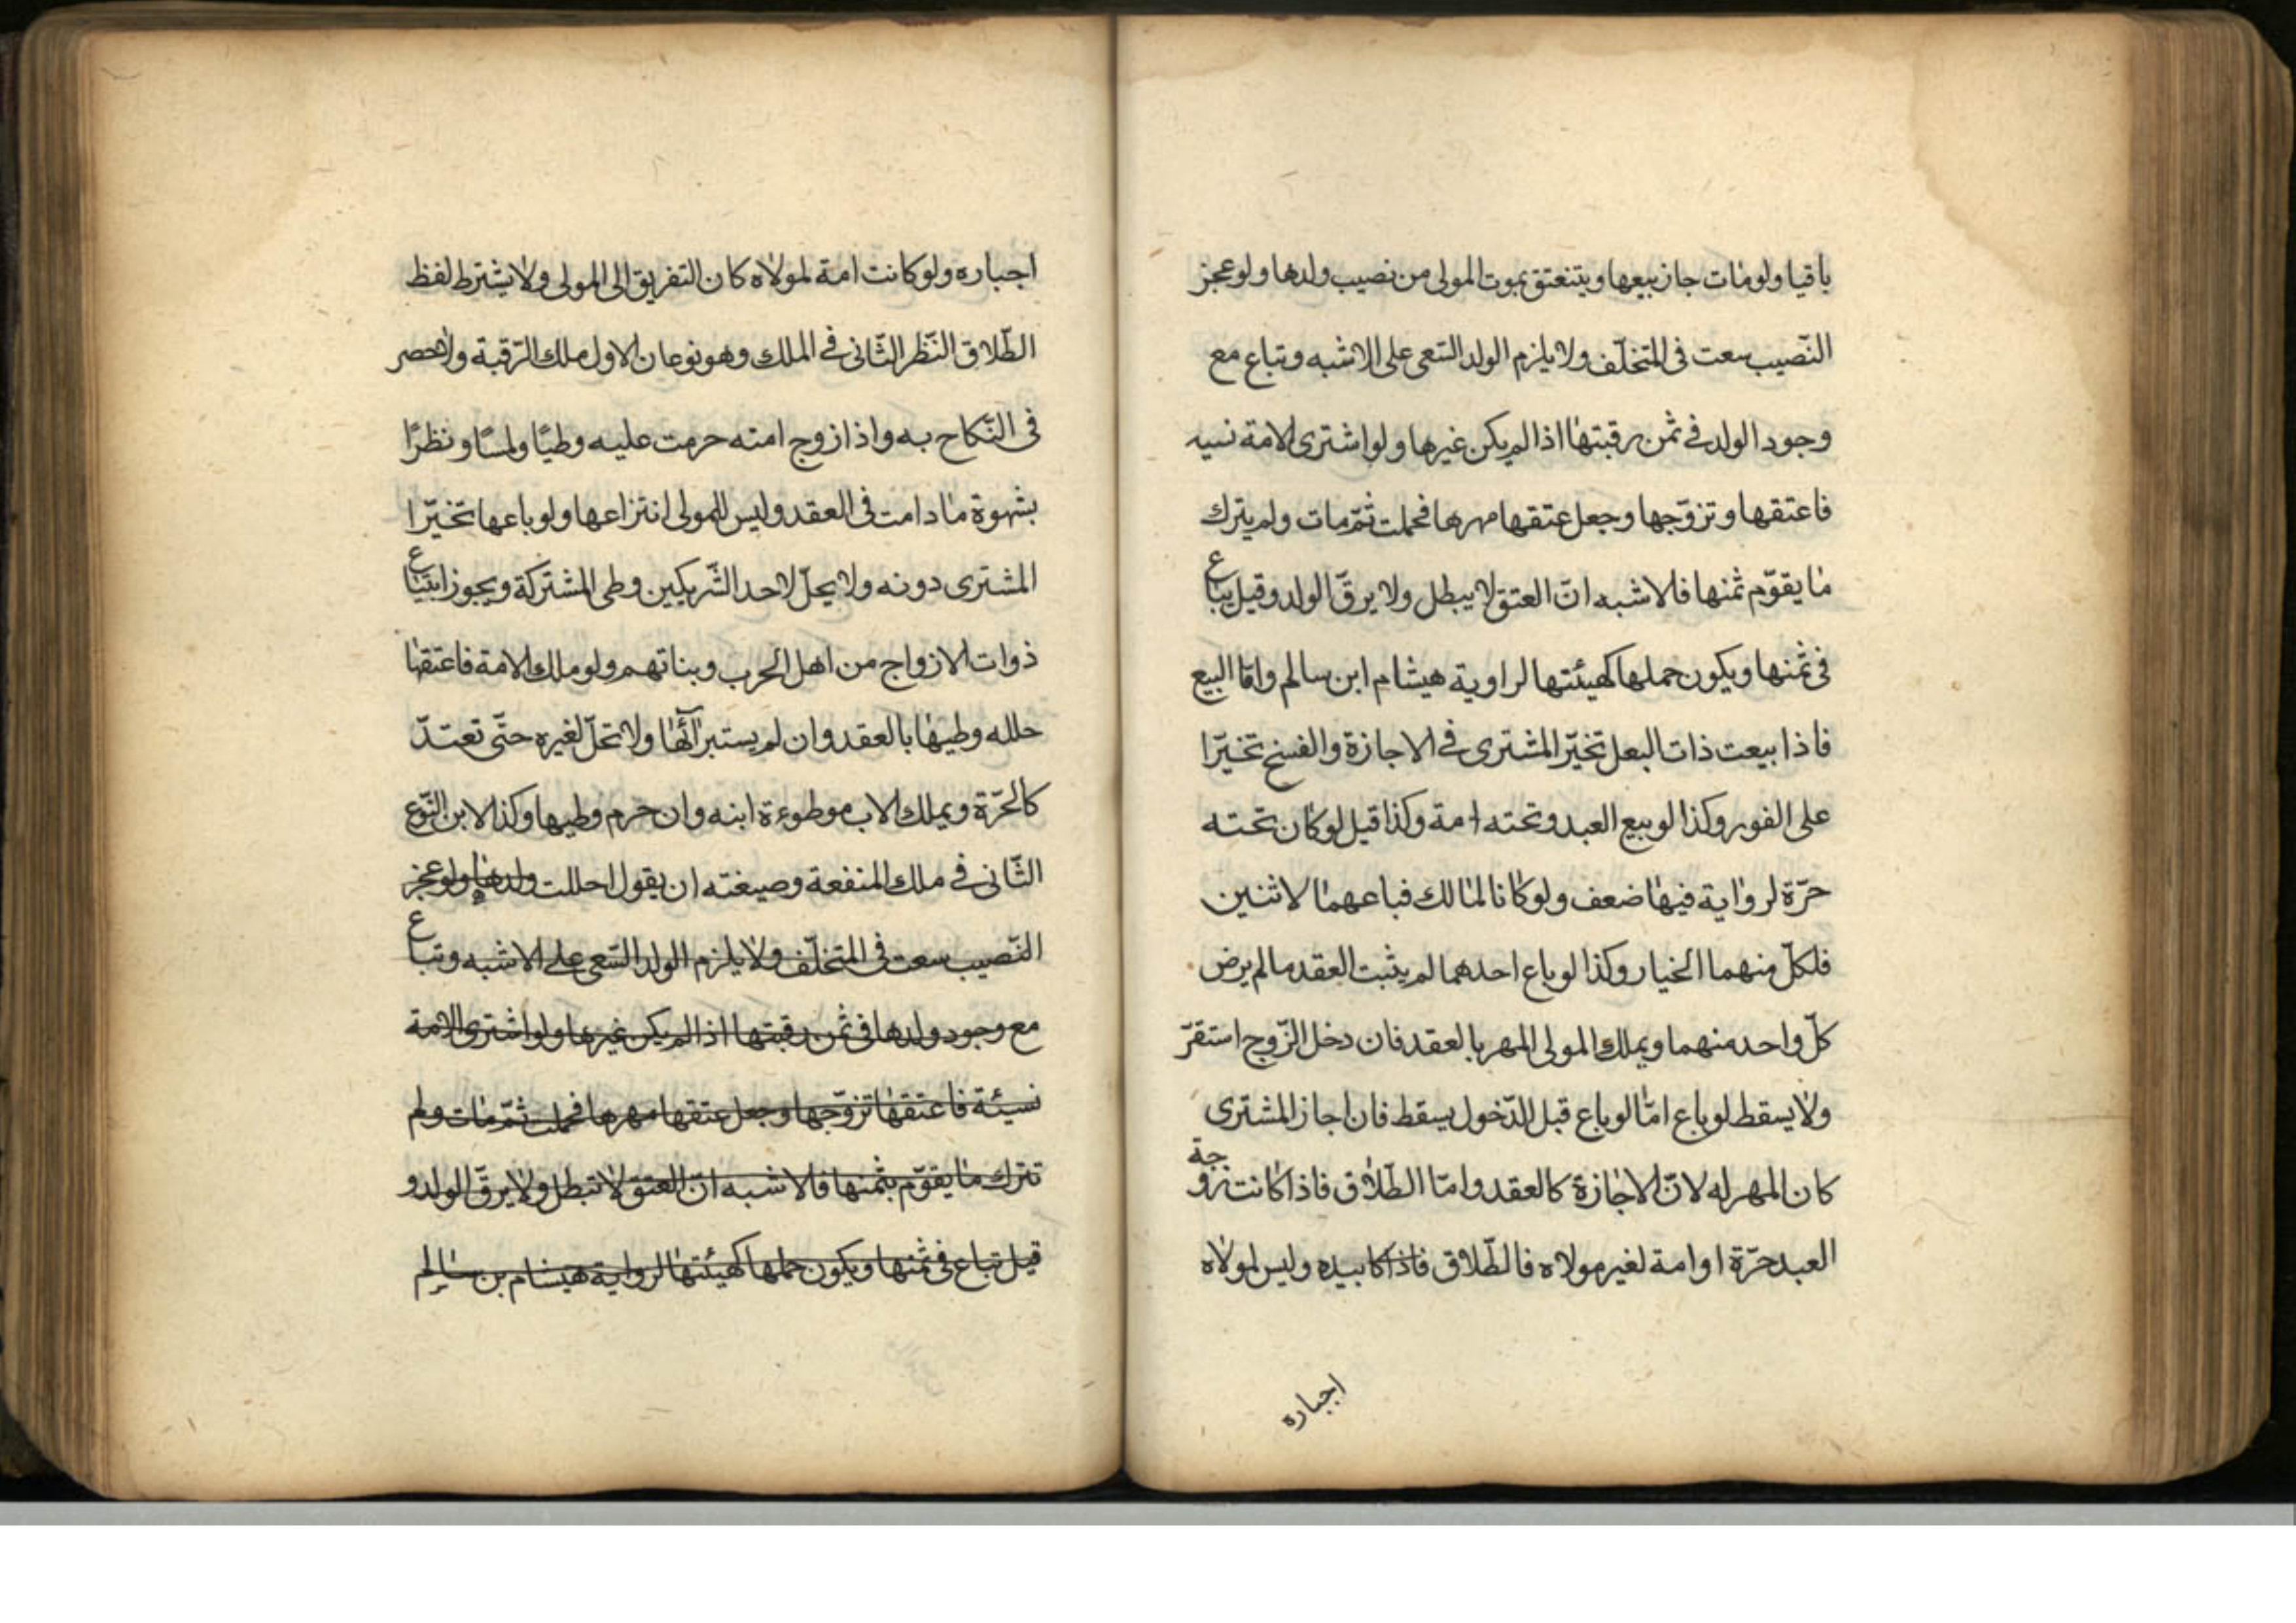 باقيا ولو مات جاز بيعها ويتنعتق بموت المولى من نصيب ولدها ولو عجز
النّصيب سعت فى المتخلّف ولا يلزم الولد السّعى على الاشبه وتباع مع
وجود الولد فى ثمن رقبتها اذا لم يكن غيرها ولو اشترى الامة نسيه
فاعتقها وتزوّجها وجعل عتقها مهرها فحملت ثمّ مات ولم يترك
ما يقوّم ثمنها فلاشبه انّ العتق لا يبطل ولا يرقّ الولد وقيل يباع
فى ثمنها ويكون حملها كهيئتها لراوية هيشام ابن سالم وامّا البيع
فاذا بيعت ذات البعل تخيّر المشترى فى الاجازة والفسخ تخيّرا
على الفور وكذا لو بيع العبد وتحته امة وكذا قيل لو كان تحته
حرّة لرواية فيها ضعف ولو كانا لمالك فباعهما لاثنين
فلكلّ منهما الخيار وكذا لو باع احدهما لم يثبت العقد ما لم يرض
كلّ واحد منهما ويملك المولى المهر بالعقد فان دخل الزّوج استقرّ
ولا يسقط لو باع امّا لو باع قبل الدّخول يسقط فان اجاز المشترى
كان المهر له لانّ الاجازة كالعقد وامّا الطّلاق فاذا كانت زوجة
العبد حرّة او امة لغير مولاه فالطّلاق فاذا كا بيده وليس لمولاه
اجباره
اجباره ولو كانت امة لمولاه كان التفريق الى المولى ولا يشترط لفظ
الطّلاق النّظر الثّانى فى الملك وهو نوعان الاول ملك الرّقبة ولا حصر
فى النّكاح به واذا زوج امته حرمت عليه وطيًا ولمسًا ونظرًا
بشهوة ما دامت فى العقد وليس للمولى انتزاعها ولو باعها تخيّرا
المشترى دونه ولا يحلّ لاحد الشّريكين وطى المشتركة ويجوز ابتياع
ذوات الازواج من اهل الحرب وبناتهم ولو ملك الامة فاعتقها
حلله وطيها بالعقد وان لم يستبرائها ولا تحلّ لغيره حتّى تعتدّ
كالحرّة ويملك الاب موطوءة ابنه وان حرم وطيها وكذا الابن النّوع
الثّانى فى ملك المنفعة وصيغته ان يقول احللت ولدها ولو عجز
النّصيب سعت فى المتخلّف ولا يلزم الولد السّعى على الاشبه وتباع
مع وجود ولدها فى ثمن رقبتها اذا لم يكن غيرها ولو اشترى الامة
نسيئة فاعتقها تزوّجها وجعل عتقها مهرها فحملت ثمّ مات ولم
تترك ما يقوّم بثمنها فالاشبه انّ العتق لا تبطل ولا يرقّ الولد و
قيل تباع فى ثمنها ويكون حملها كهيئتها لرواية هيشام بن سالم